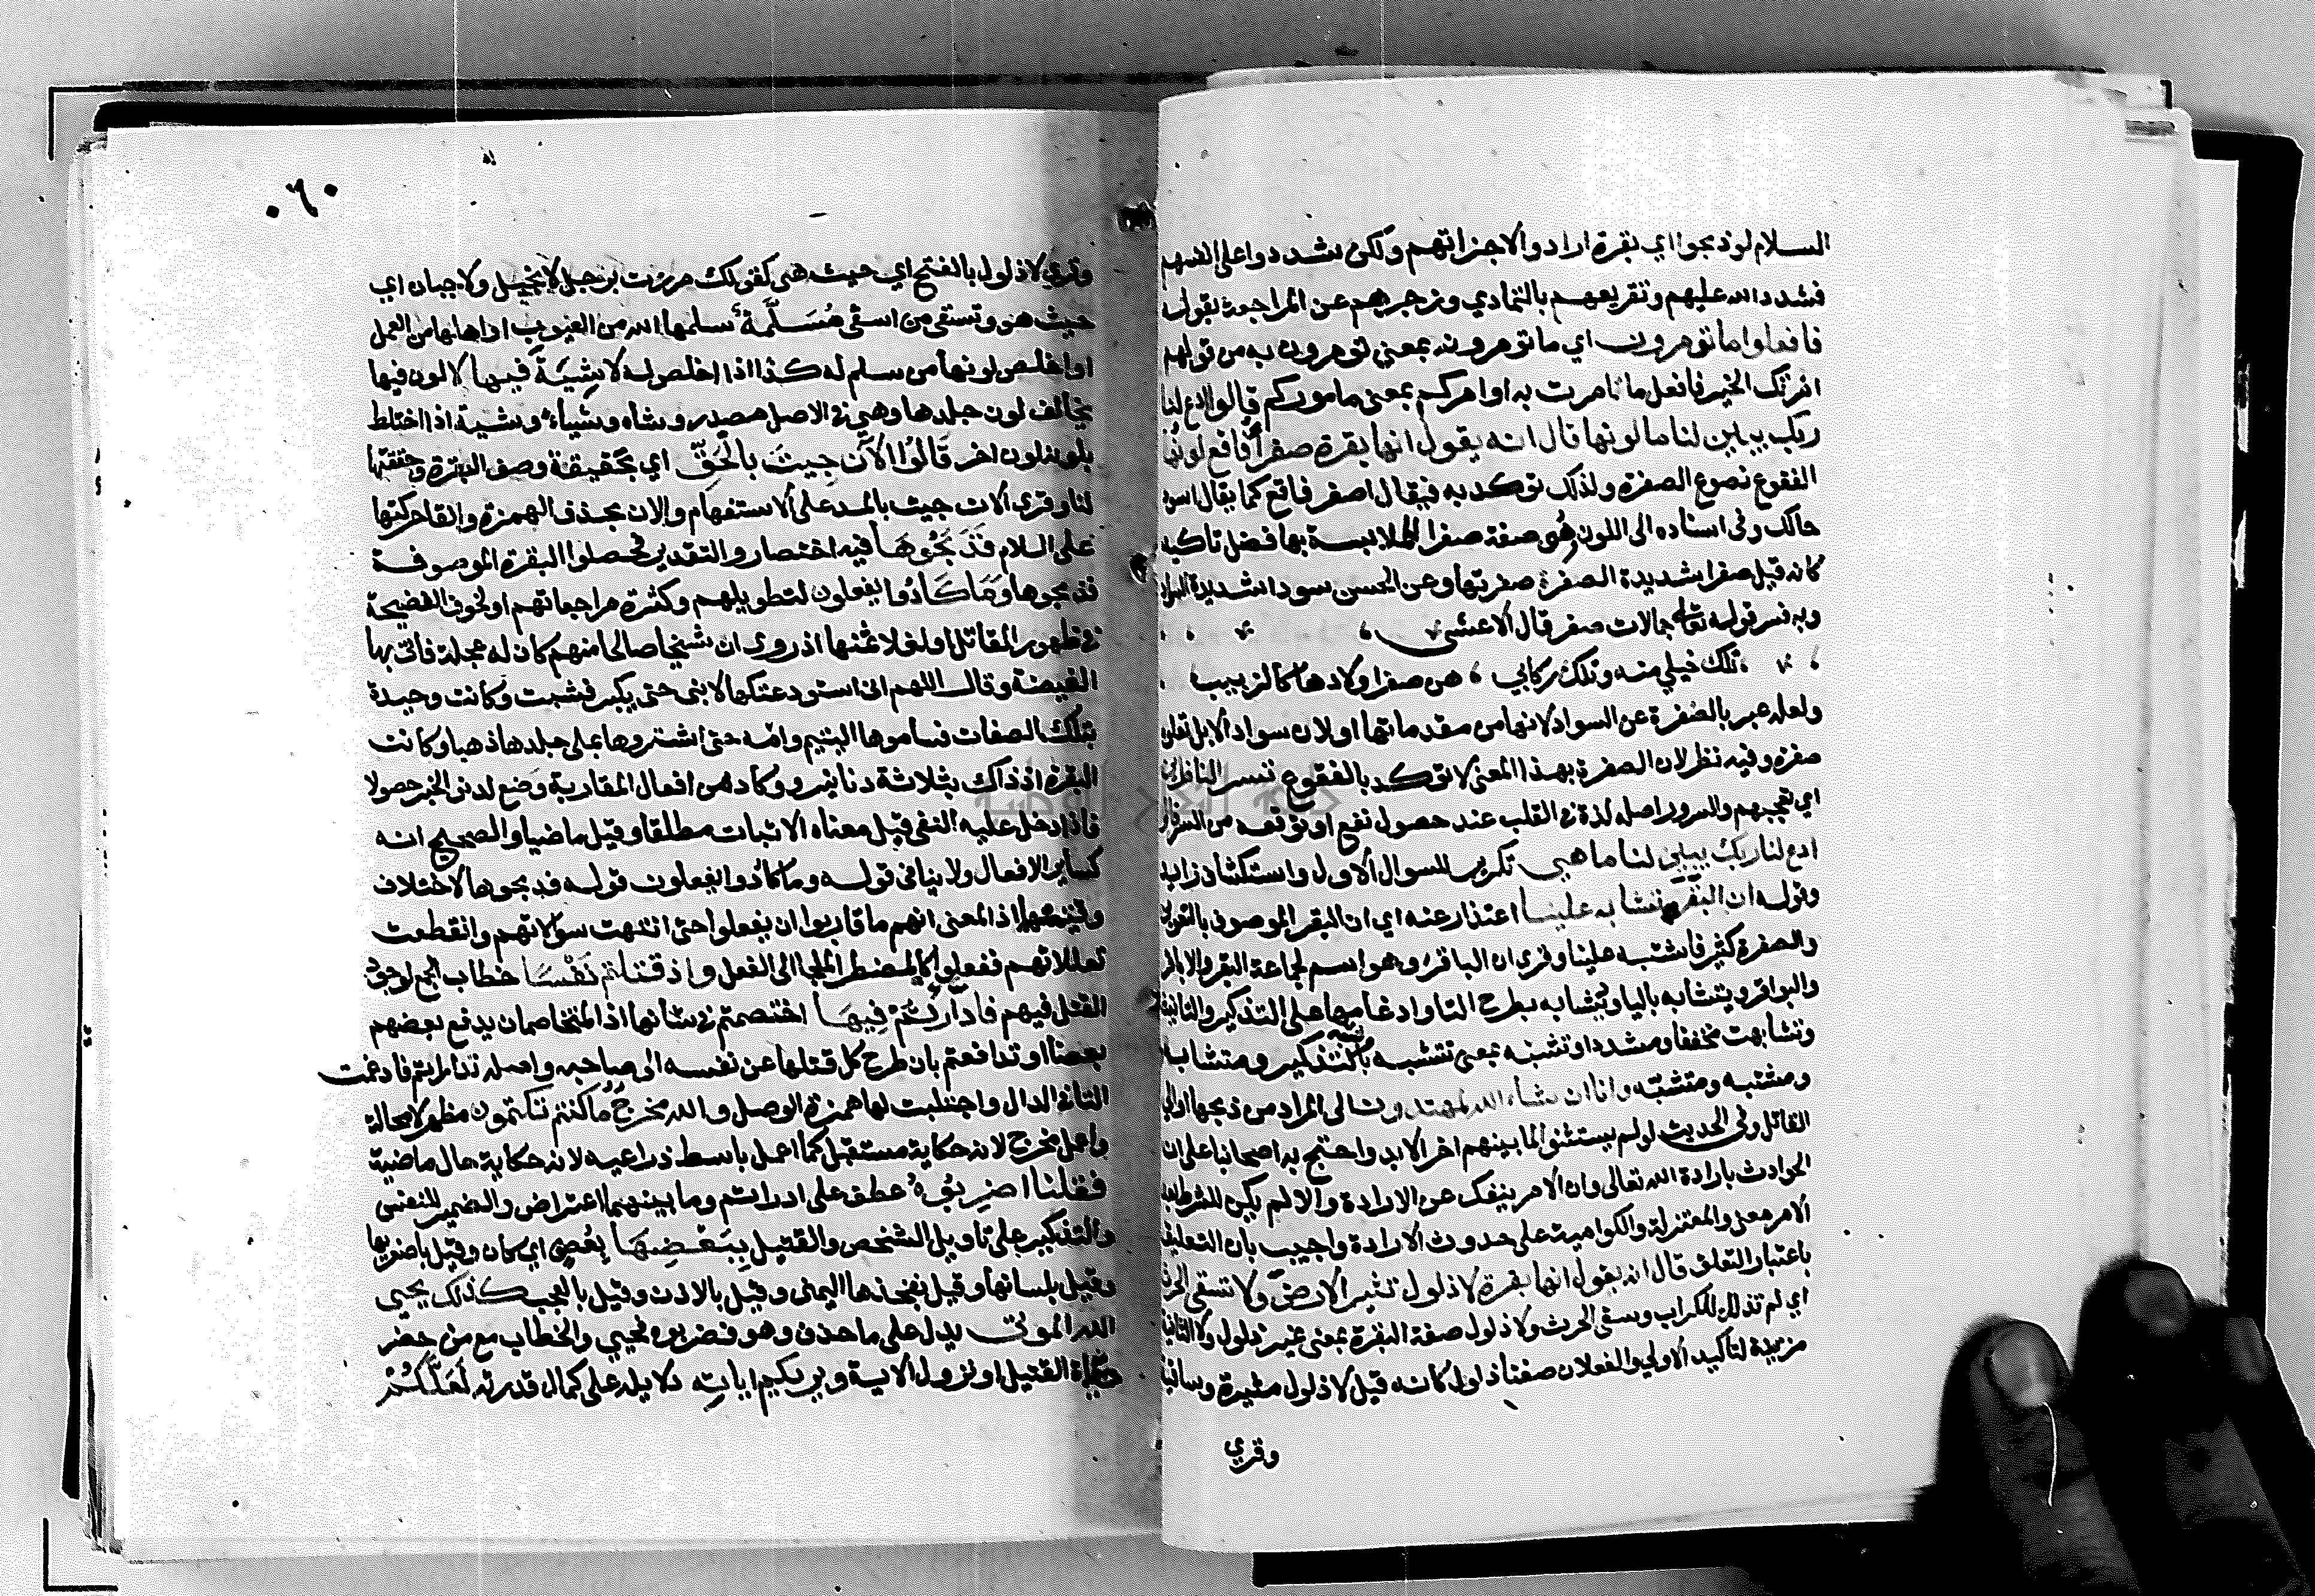 السلام لو ذبحوا اي بقرة ارادوا لاجزاتهم ولكن شددوا على انفسهم
فشدد الله عليهم وتقريعهم بالتمادي وزجرهم عن المراجعة بقوله
فافعلوا ما تومرون اي ما تومرونه بمعنى تومرون به من قولهم
امرتك الخير فافعل ما امرت به او امركم بمعنى ماموركم قالوا ادع لنا
ربك يبين لنا ما لونها قال انه يقول انها بقرة صفرا فاقع لونها
الفقوع نصوع الصفرة ولذلك توكد به فيقال اصفر فاقع كما يقال اسود
حالك وفى اسناده الى اللون وهو صفة صفرا لملابسة بها فضل تاكيد
كانه قيل صفرا شديدة الصفرة صفرتها وعن الحسن سودا شديدة السواد
وبه فسر قوله تعالى جمالات صفر قال الاعشى
تلك خيلي منه وتلك ركابي هن صفر اولادها كالزبيب
ولعله عبر بالصفرة عن السواد لانها من مقدماتها او لان سواد الابل تعلوه
صفرة وفيه نظر لان الصفرة بهذا المعنى لا توكد بالفقوع تسر الناظرين
اي تعجبهم والسرور اصله لذة في القلب عند حصول نفع او توقعه من السر قالوا
ادع لنا ربك يبين لنا ما هي تكرير للسوال الاول واستكشاف زايد
وقوله ان البقر تشابه علينا اعتذار عنه اي ان البقر الموصوف بالتعوين
والصفرة كثير فاشتبه علينا وقرى ان الباقر وهو اسم لجماعة البقر والاباقر
والبواقر ويتشابه باليا وتشابه بطرح التا وادغامها على التذكير والتانيث
وتشابهت مخففا ومشددا وتشبه بمعنى تتشبه بالتذكير ومتشابه
ومشتبه ومتشبه وانا ان شاء الله لمهتدون الى المراد من ذبحها او الى
القاتل وفى الحديث لو لم يستثنوا لما بينهم اخر الابد واحتج به اصحابنا على ان
الحوادث بارادة الله تعالى وان الامر ينفك عن الارادة والا لم يكن للشرط بعد
الامر معنى والمعتزلة والكرامية على حدوث الارادة واجيب بان التعليق
باعتبار التعلق قال انه يقول انها بقرة لا ذلول تثير الارض ولا تسقى الحرث
اي لم تذلل للكراب وسقى الحرث ولا ذلول صفة البقرة بمعنى غير ذلول ولا الثانية
مزيدة لتاكيد الاولى والفعلان صفتا ذلول كانه قيل لا ذلول مثيرة وساقية
وقري
٠٦٠
وقري لا ذلول بالفتح اي حيث هى كقولك مررت برجل لا بخيل ولا جبان اي
حيث هو وتسقى من اسقى مُسَلَّمة سلمها الله من العيوب او اهلها من العمل
او اخلص لونها من سلم له كذا اذا اخلص له لا شِيَةَ فيها لا لون فيها
يخالف لون جلدها وهي في الاصل مصدر وشاه وشيا وشية اذا اختلط
بلونه لون اخر قَالوُا الآن جِيتَ بالحَقّ اي بحقيقة وصف البقرة وحققتها
لنا وقرى آلان جيت بالمد على الاستفهام والان بحذف الهمزة والقا حركتها
على السلام فَذَبَحُوهَا فيه اختصار والتقدير فحصلوا البقرة الموصوفة
فذبحوها وَمَا كَادُوا يفعلون لتطويلهم وكثرة مراجعاتهم او لخوف الفضيحة
في ظهور القاتل او لغلا ثمنها اذ روى ان شيخا صالحا منهم كان له عجلة فاتى بها
الغيضة وقال اللهم انى استودعتكها لابنى حتى يكبر فشبت وكانت وحيدة
بتلك الصفات فساموها اليتيم وامه حتى اشتروها بملى جلدها ذهبا وكانت
البقرة اذ ذاك بثلاثة دنانير وكاد من افعال المقاربة وضع لدنو الخبر حصولا
فاذا دخل عليه النفى قيل معناه الاثبات مطلقا وقيل ماضيا والصحيح انه
كساير الافعال ولا ينافى قوله وما كادوا يفعلون قوله فذبحوها لاختلاف
وقتيهما اذ المعنى انهم ما قاربوا ان يفعلوا حتى انتهت سوالاتهم وانقطعت
تعللاتهم ففعلوا كالمضطر الملجا الى الفعل واذ قتلتم نَفْسَا خطاب الجمع لوجود
القتل فيهم فادارئتم فِيهَا اختصمتم في شانها اذ المتخاصمان يدفع بعضهم
بعضا او تدافعتم بان طرح كل قتلها عن نفسه الى صاحبه واصله تدارأتم فادغمت
التا في الدال واجتلبت لها همزة الوصل والله مخرج ما كنتم تكتمون مظهره لا محالة
واعمل مخرج لانه حكاية مستقبل كما اعمل باسط ذراعيه لانه حكاية حال ماضية
فقلنا اضرِبُوهُ عطف على اداراتم وما بينهما اعتراض والضمير للنفس
والتذكير على تاويل الشخص والقتيل بِبَعْضِهَا بعض اي كان وقيل باصغريها
وقيل بلسانها وقيل بفخذها اليمنى وقيل بالاذن وقيل بالعجب كذلك يحيى
الله الموتى يدل على ما حذف وهو فضربوه فحيي والخطاب مع من حضر
حياة القتيل او نزول الاية ويريكم اياتِه دلايله على كمال قدرته لَعَلَّكُمْ